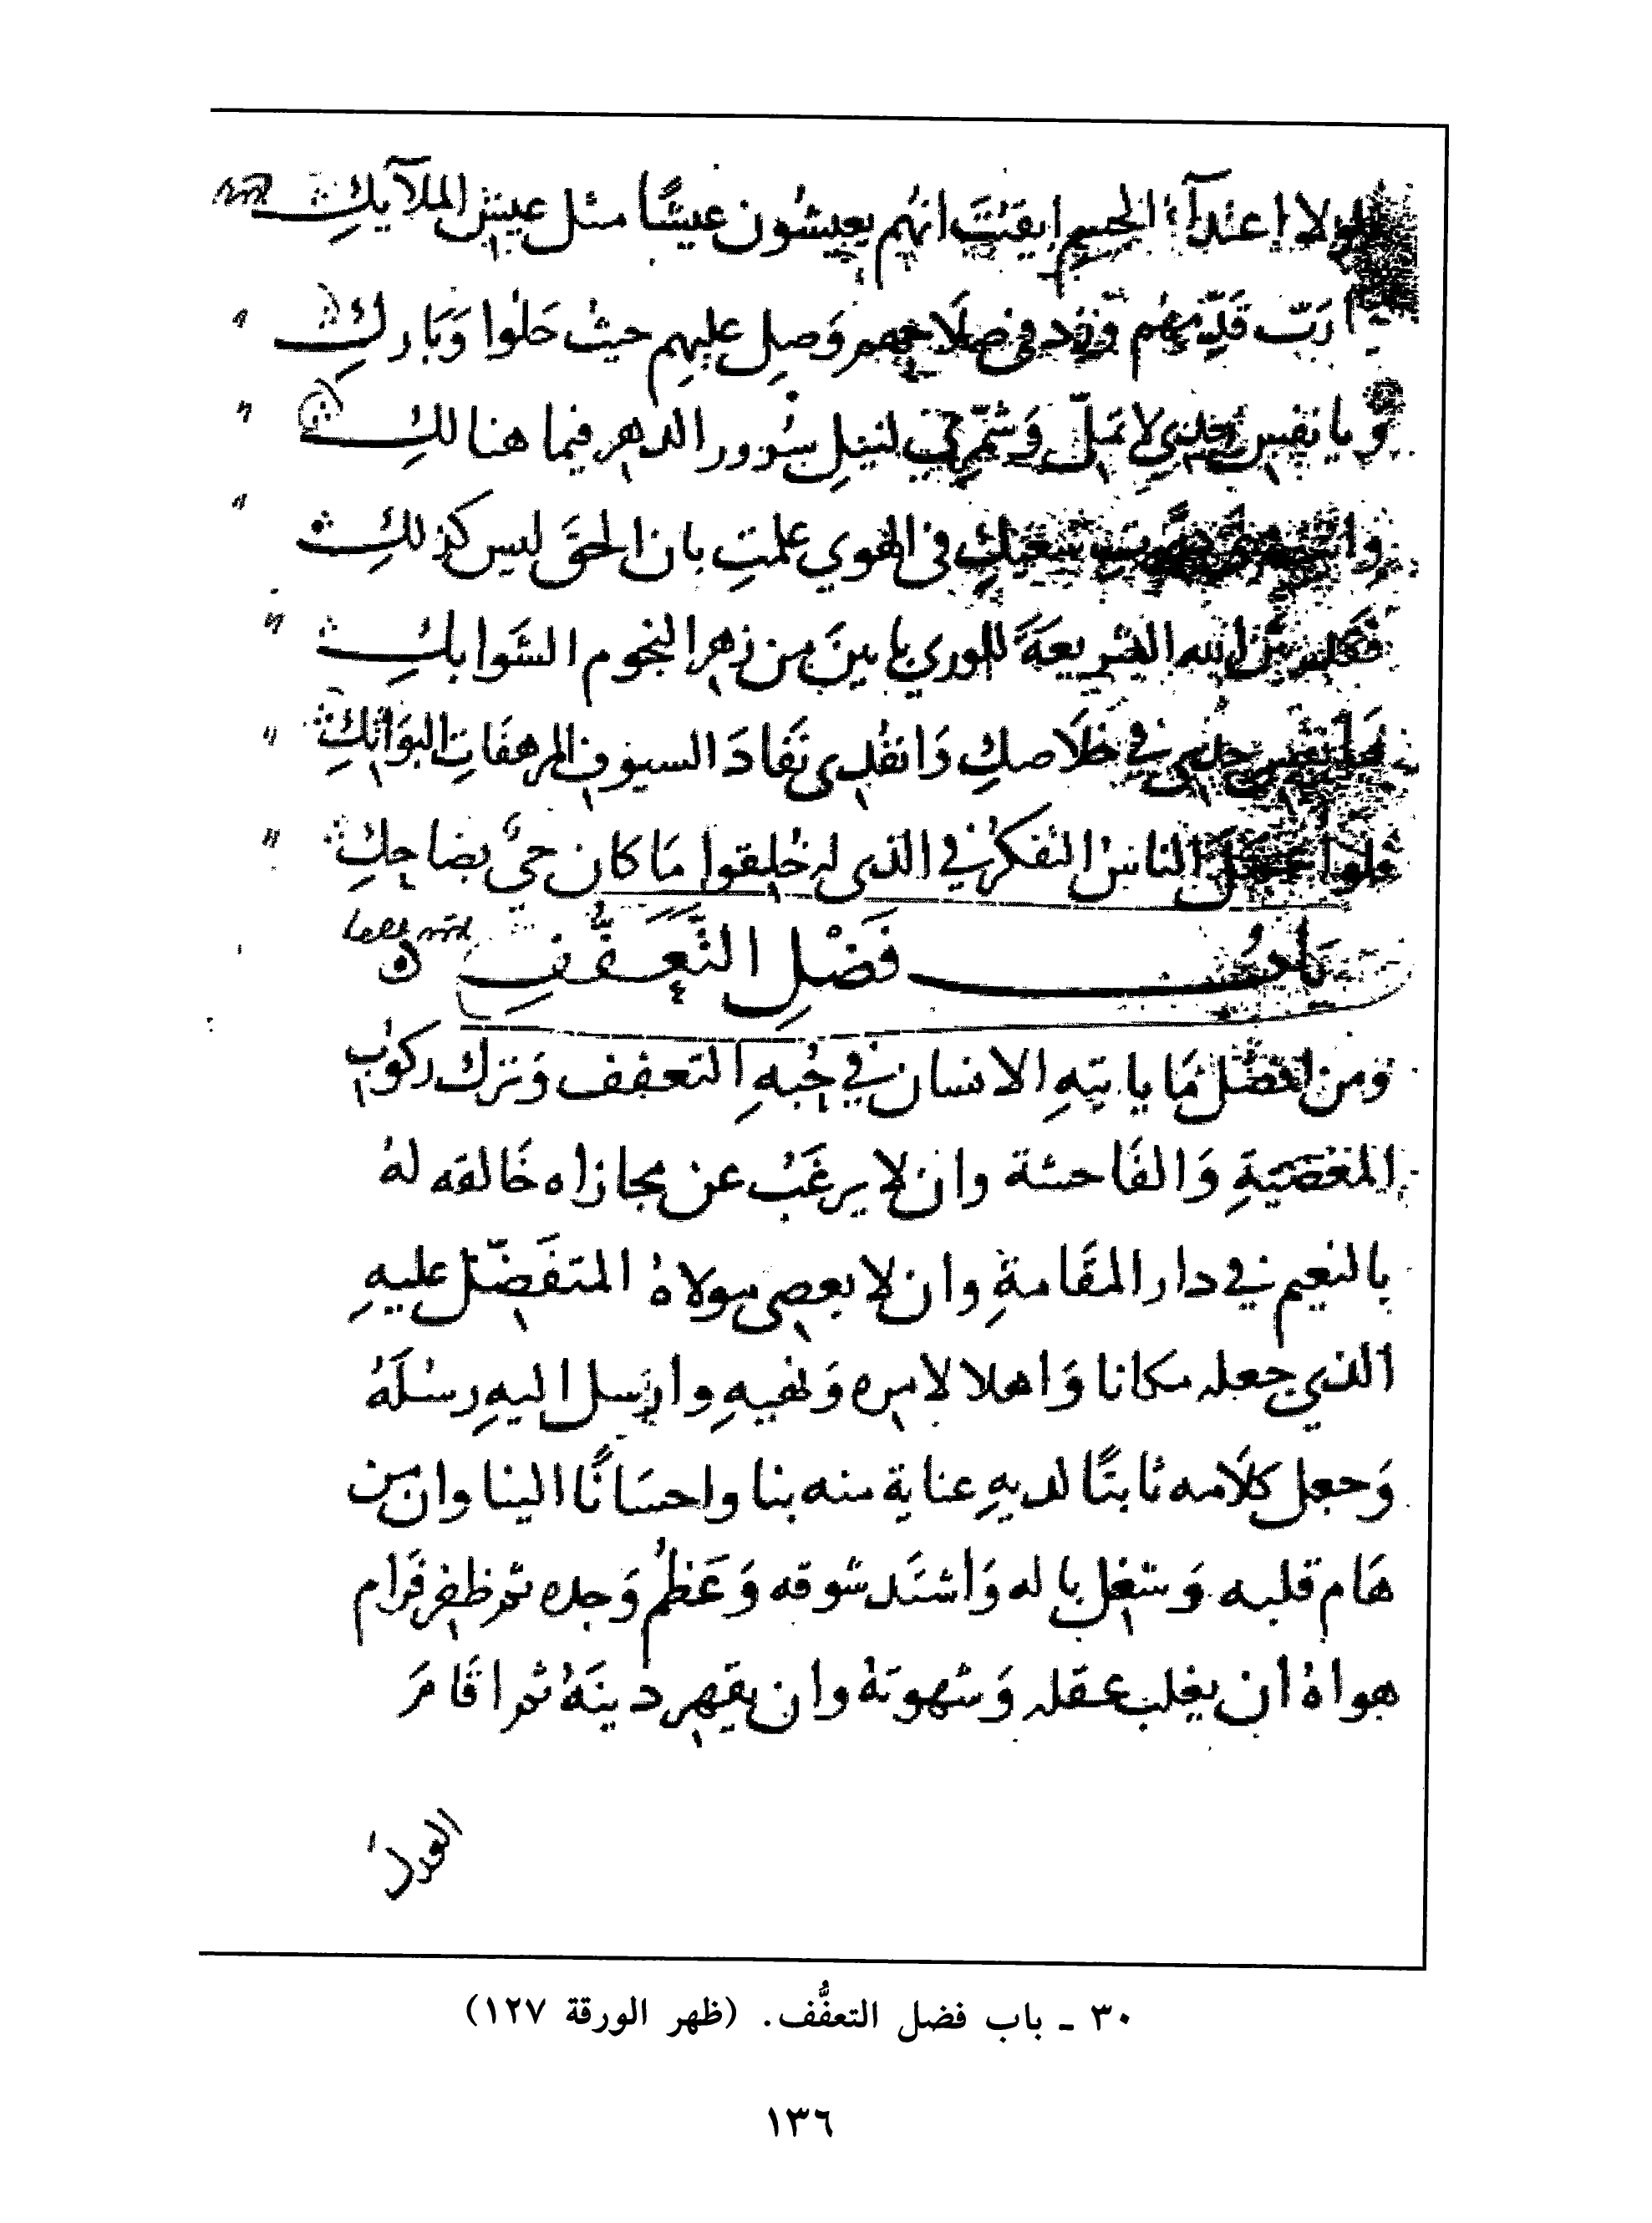 ولولا اعتدآء الجسم ايقنتَ انهُم يعيشُون عيشًا مثل عيش الملآيكِ
رَبّ قَدِّمهُم وزد في صلَاحهم وَصلِ عليهِم حيثُ حَلوُا وَبَاركِ
وَيا نفس جدي لا تملّ وَشمّرِي لنيلِ سُرور الدهر فيما هنالكِ
سَعيَكِ في الهوي علمتِ بان الحقَ ليس كذلكِ
الله الشريعَةَ للوري بابينَ من زهر النجوم الشَوابكِ
نفس جدي في خلَاصكِ وَانفُدى نَفَادَ السيوف المرهفَاتِ البَوَاتكِ
فلوا عمل الناسُ التفكرُ في الذي له خُلِقوا مَا كان حيٌ بضاحكِ
بَابُ فَضْلِ التَّعَفُّفِ
وَمن افضَل مَا ياتيَهِ الانسان في حُبهِ التعفف وَترك ركوُب
المعصَيَةِ وَالفَاحشة وان لا يرغَبُ عن مجازاه خَالقه لهُ
بالنعِيم في دار المقَامةِ وان لا يعصى مولاهُ المتفَضّل عليهِ
الذي جعله مكانا وَاهلا لامره وَنهيهِ وارسل اليهِ رسُلَهُ
وَجعل كلَامه ثابتًا لديهِ عناية منه بنا واحسَانًا الينا وان من
هَام قلبه وَشغل باله وَاشتَد شوقه وَعَظمُ وَجده ثم ظفر فَرام
هواهُ ان يغلب عقله وَشهوتهُ وان يقهر دينَهُ ثم اقَامَ
العدل
٣٠ ـ باب فضل التعفُّف. (ظهر الورقة ١٢٧)
١٣٦